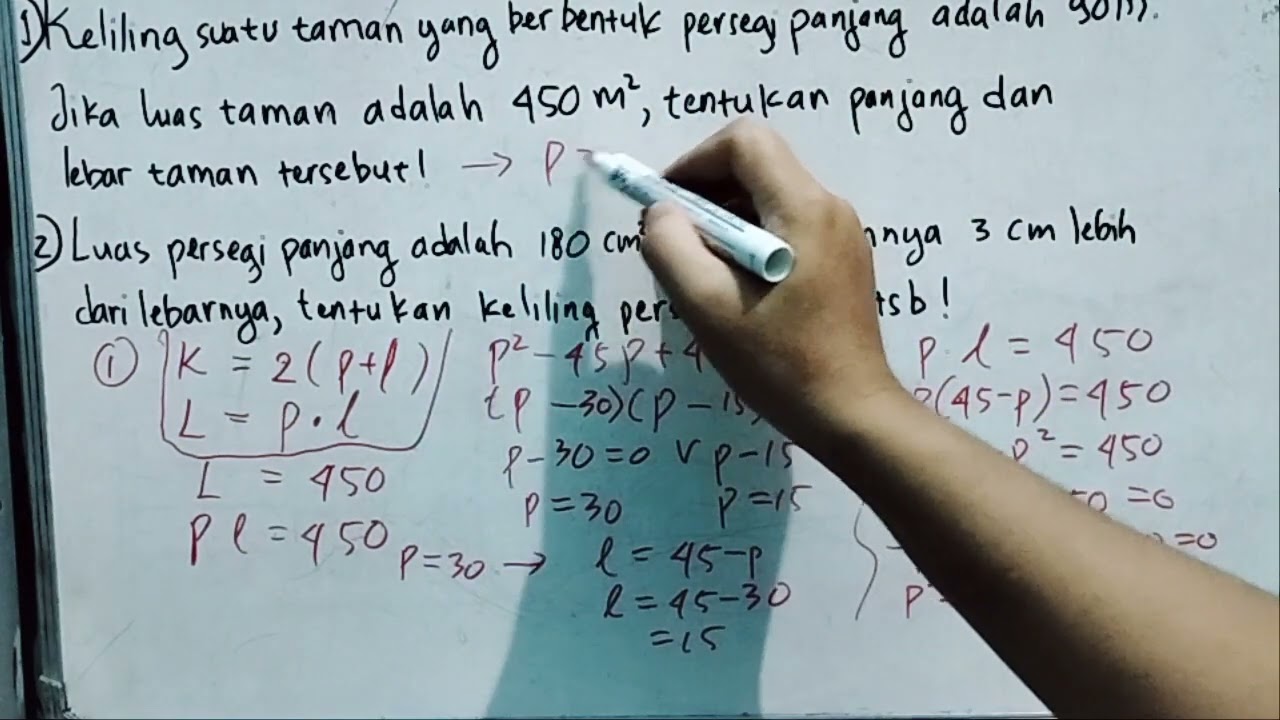 1) Keliling suatu taman yang berbentuk persegi panjang adalah 90 m.
Jika luas taman adalah 450 m², tentukan panjang dan
lebar taman tersebut! → P =
2) Luas persegi panjang adalah 180 cm² nya 3 cm lebih
dari lebarnya, tentukan keliling tsb!
① K = 2(p+l)
L = p.l
L = 450
Pl = 450
p² - 45p + 4
(p - 30)(p - 15)
p - 30 = 0 v p - 15
p = 30 p = 15
p = 30 → l = 45 - p
l = 45 - 30
= 15
p.l = 450
p(45-p) = 450
p² = 450
50 = 0
= 0
p²